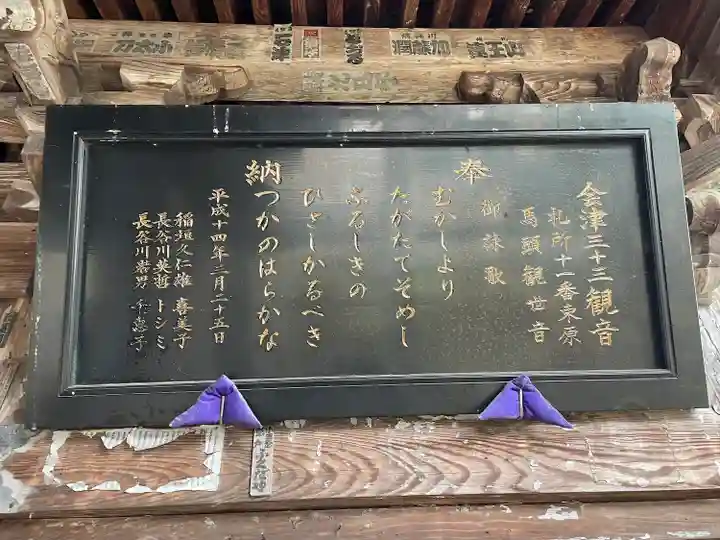 会津三十三観音
札所十一番束原
馬頭観世音
奉
御詠歌
むかしより
たがたてそめし
ふるしきの
ひさしかるべき
つかのはらかな
納
平成十四年三月二十五日
稲垣久仁雄 喜美子
長谷川英哲 トシミ
長谷川岩男 千恵子